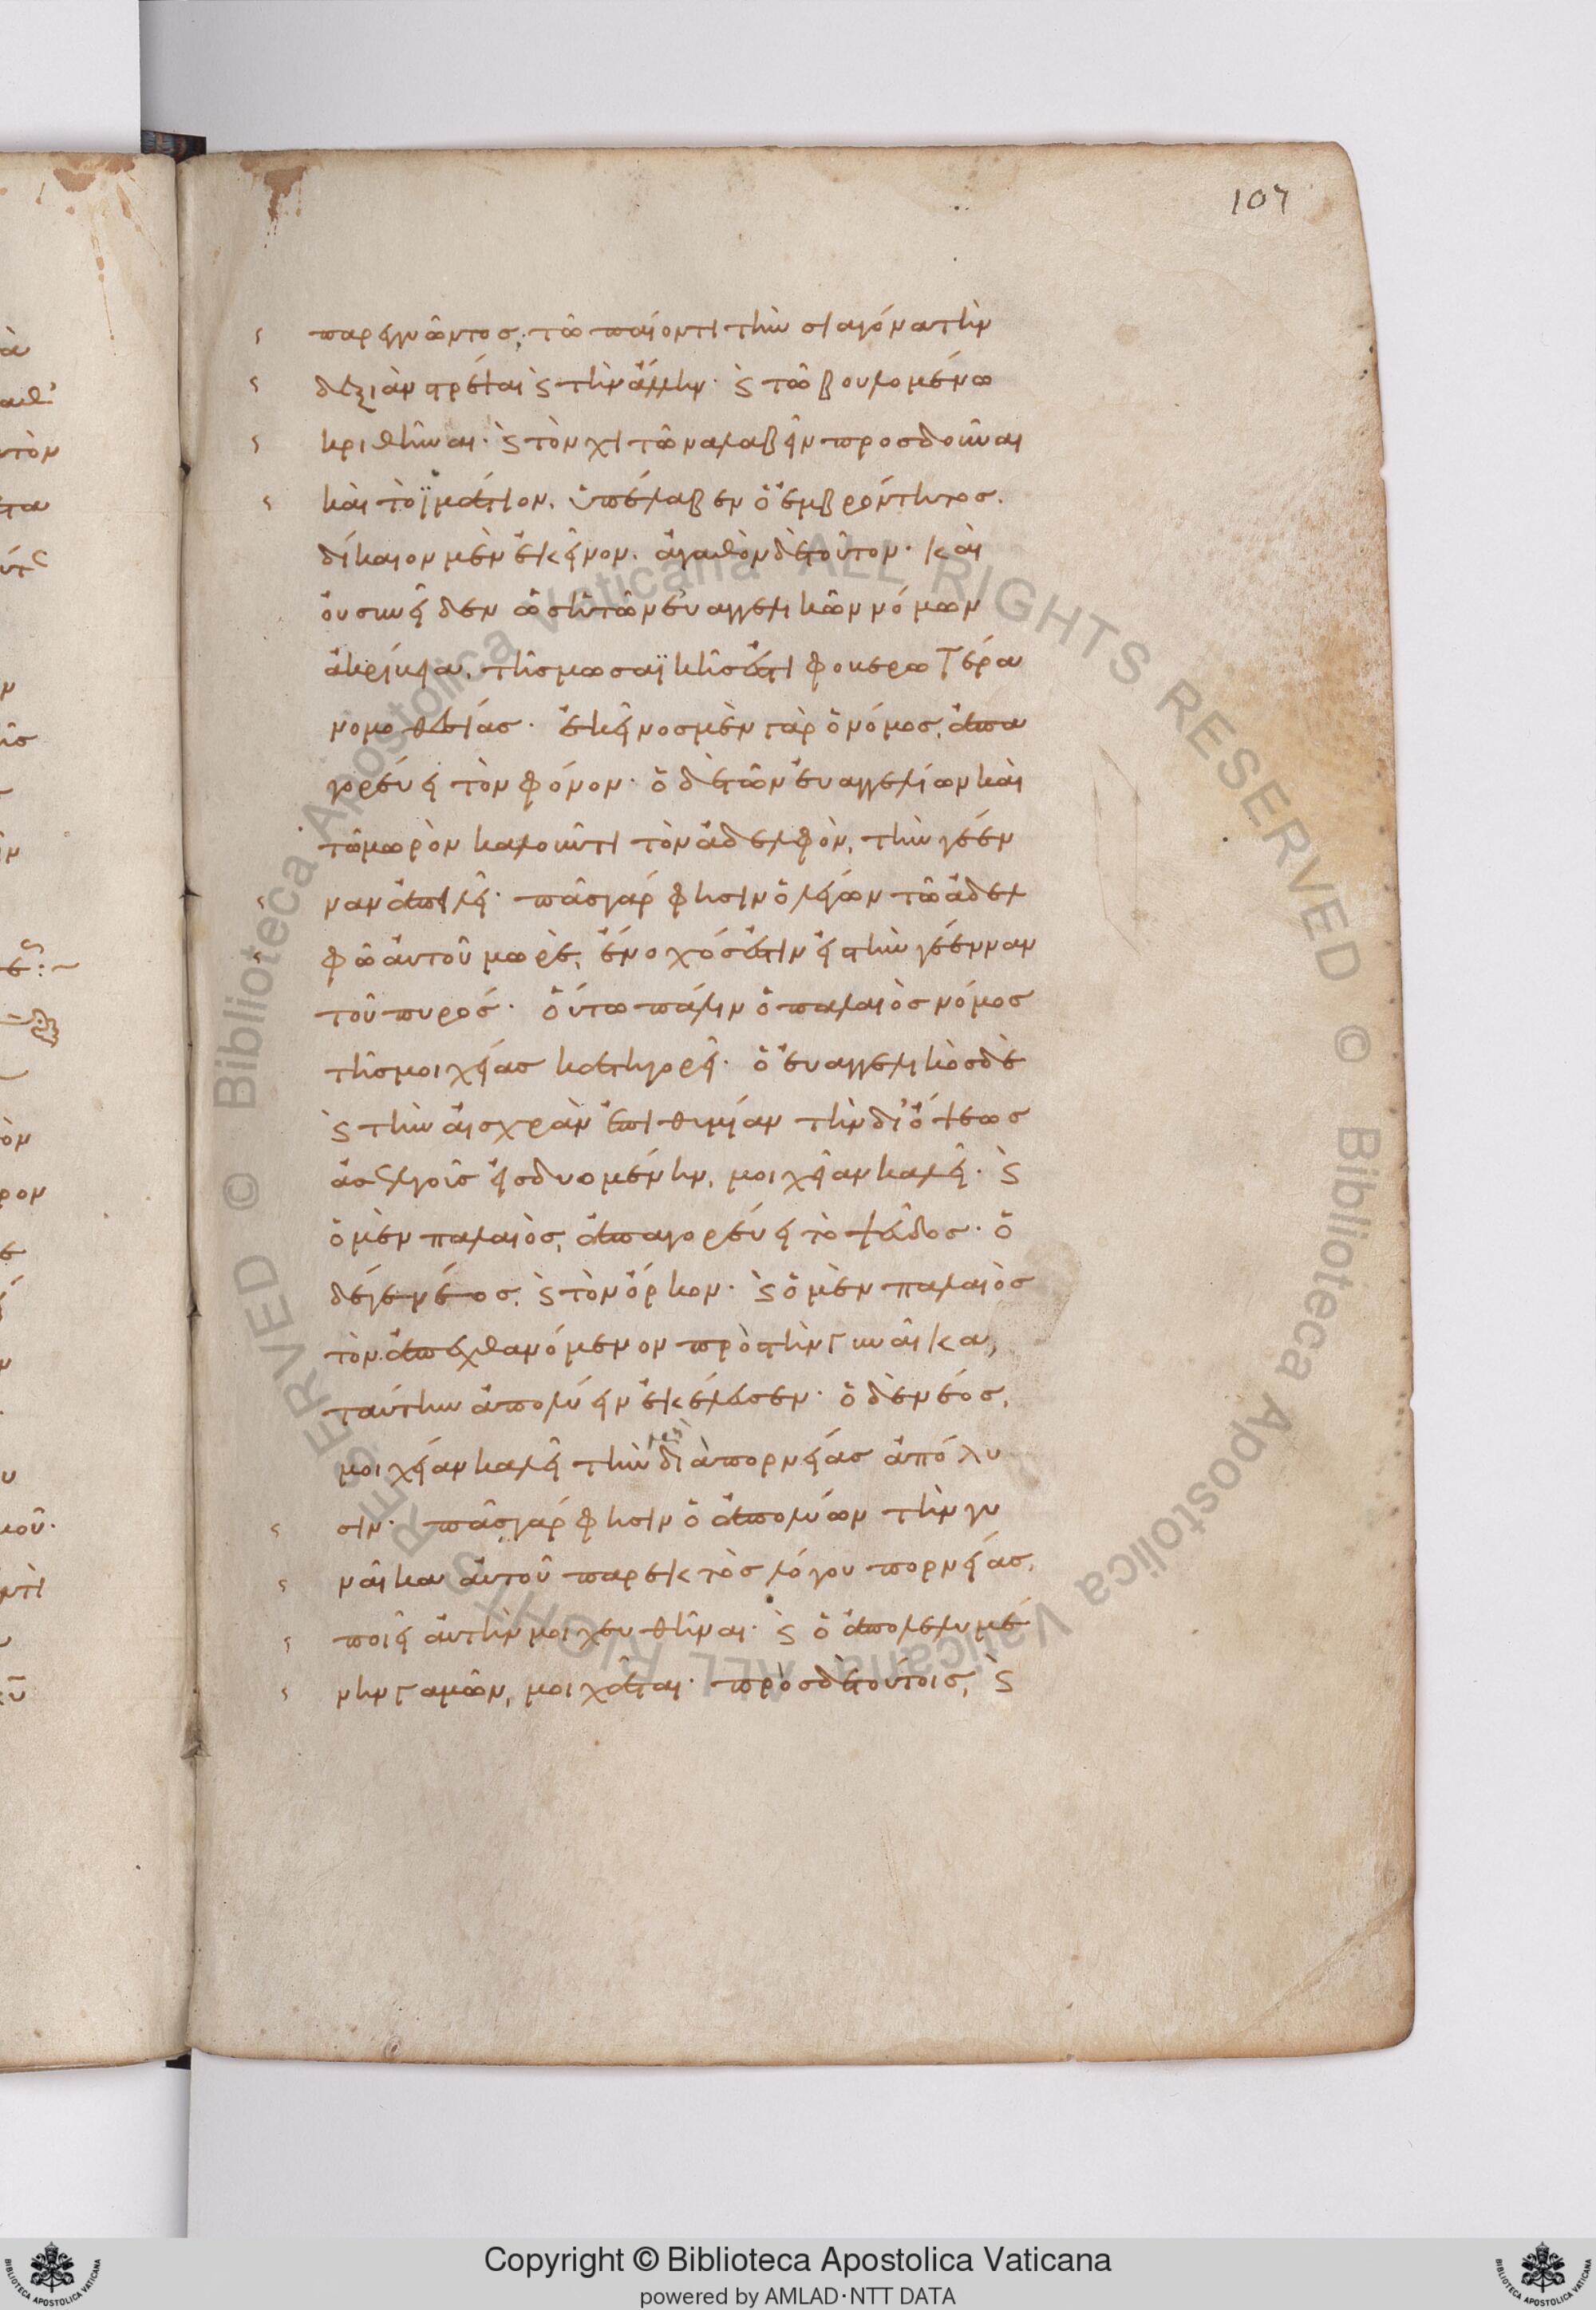 107
παρεγγυῶντος· τῶ παίοντι τὴν σιαγόνα τὴν
δεξιὰν στρέψαι ϗ τὴν ἄλλην· ϗ τῶ βουλομένω
κριθῆναι· ϗ τὸν χιτῶνα λαβεῖν προσδοῦναι
καὶ τὸ ϊμάτιον. ὑπέλαβεν ὁ ἐμβρόντητος.
δίκαιον μὲν ἐκεῖνον. ἀγαθὸν δὲ τοῦτον· καὶ
οὐ συνεῖδεν ὡς ἡ τῶν εὐαγγελικῶν νόμων
ἀκρίβεια, τῆς μωσαϊκῆς ἐστι φοβερωτέρα
νομοθεσίας· ἐκεῖνος μὲν γὰρ ὁ νόμος, ἀπα
γορεύει τὸν φόνον· ὁ δὲ τῶν εὐαγγελίων καὶ
τῶ μωρὸν καλοῦντι τὸν ἀδελφὸν, τὴν γέεν
ναν ἀπειλεῖ· πᾶς γάρ φησιν ὁ λέγων τῶ ἀδελ
φῶ αὐτοῦ μωρὲ, ἔνοχός ἐστιν εἰς τὴν γέενναν
τοῦ πυρός· οὕτω πάλιν ὁ παλαιὸς νόμος
τῆς μοιχείας κατηγορεῖ· ὁ εὐαγγελικὸς δὲ
ϗ τὴν αἰσχρὰν ἐπιθυμίαν τὴν δι' ὄψεως
ἀσελγοῦς εἰσδυομένην, μοιχείαν καλεῖ· ϗ
ὁ μὲν παλαιὸς, ἀπαγορεύει τὸ ψεῦδος· ὁ
δέ γε νέος, ϗ τὸν ὅρκον· ϗ ὁ μὲν παλαιὸς
τὸν ἀπεχθανόμενον πρὸς τὴν γυναῖκα,
ταύτην ἀπολύειν ἐκέλευσεν· ὁ δὲ νέος,
μοιχείαν καλεῖ τὴν μὴ διὰ πορνείας ἀπόλυ
σιν· πᾶς γάρ φησιν ὁ ἀπολύων τὴν γυ
ναῖκα αὐτοῦ παρεκτὸς λόγου πορνείας,
ποιεῖ αὐτὴν μοιχευθῆναι· ϗ ὁ ἀπολελυμέ
νην γαμῶν, μοιχᾶται· πρὸς δὲ τούτοις, ϗ
Copyright © Biblioteca Apostolica Vaticana
powered by AMLAD·NTT DATA